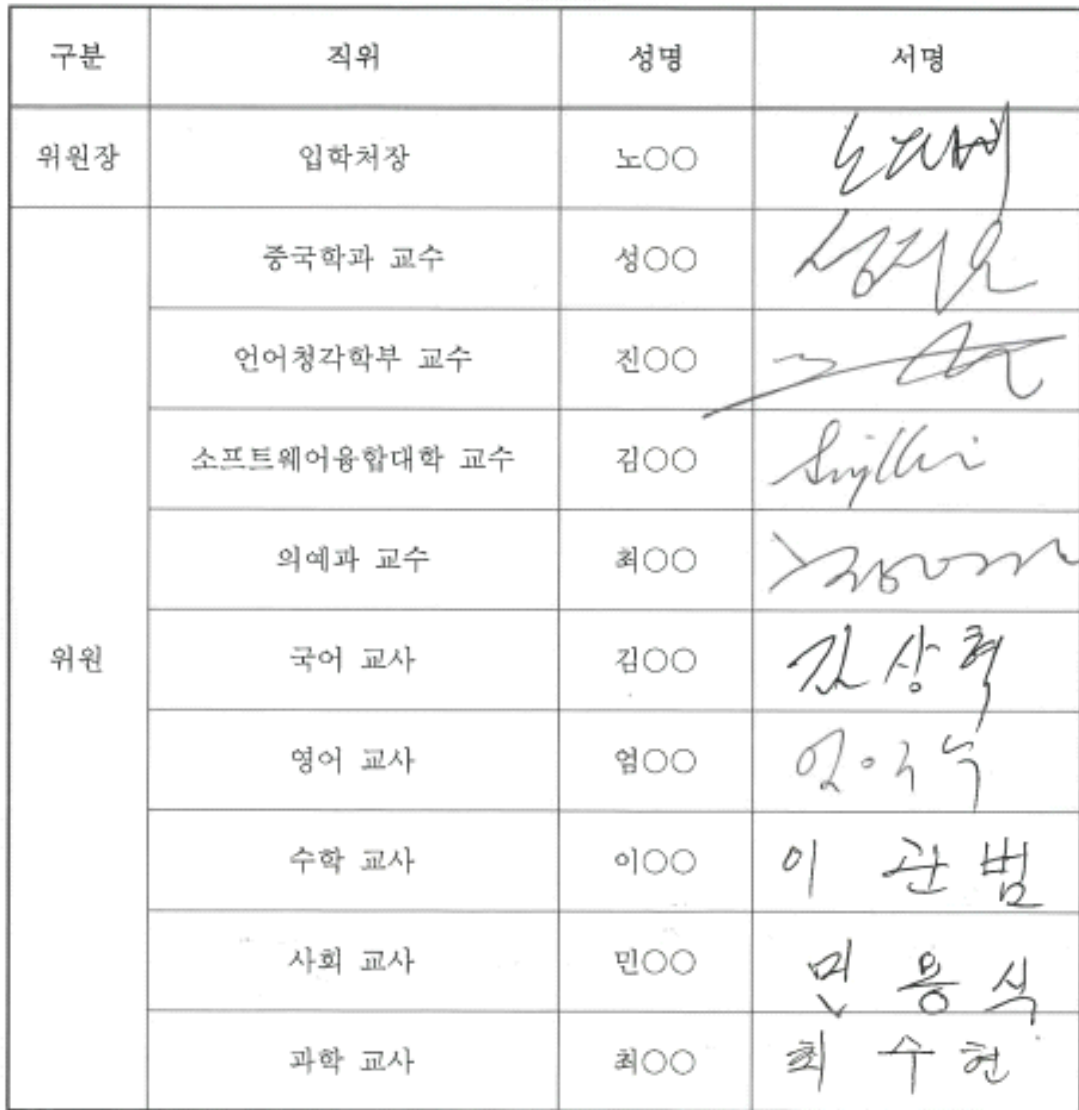 구분 직위 성명 서명
위원장 입학처장 노○○
중국학과 교수 성○○
언어청각학부 교수 진○○
소프트웨어융합대학 교수 김○○
의예과 교수 최○○
위원 국어 교사 김○○ 김상혁
영어 교사 엄○○
수학 교사 이○○ 이관범
사회 교사 민○○ 민용식
과학 교사 최○○ 최수현